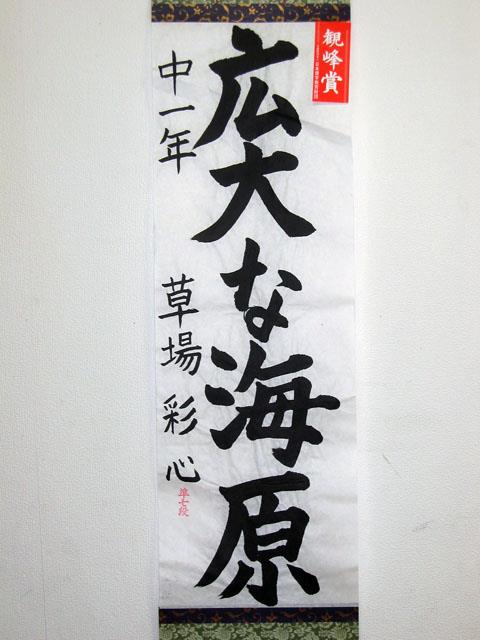 観峰賞
広大な海原
中一年 草場彩心
準七段